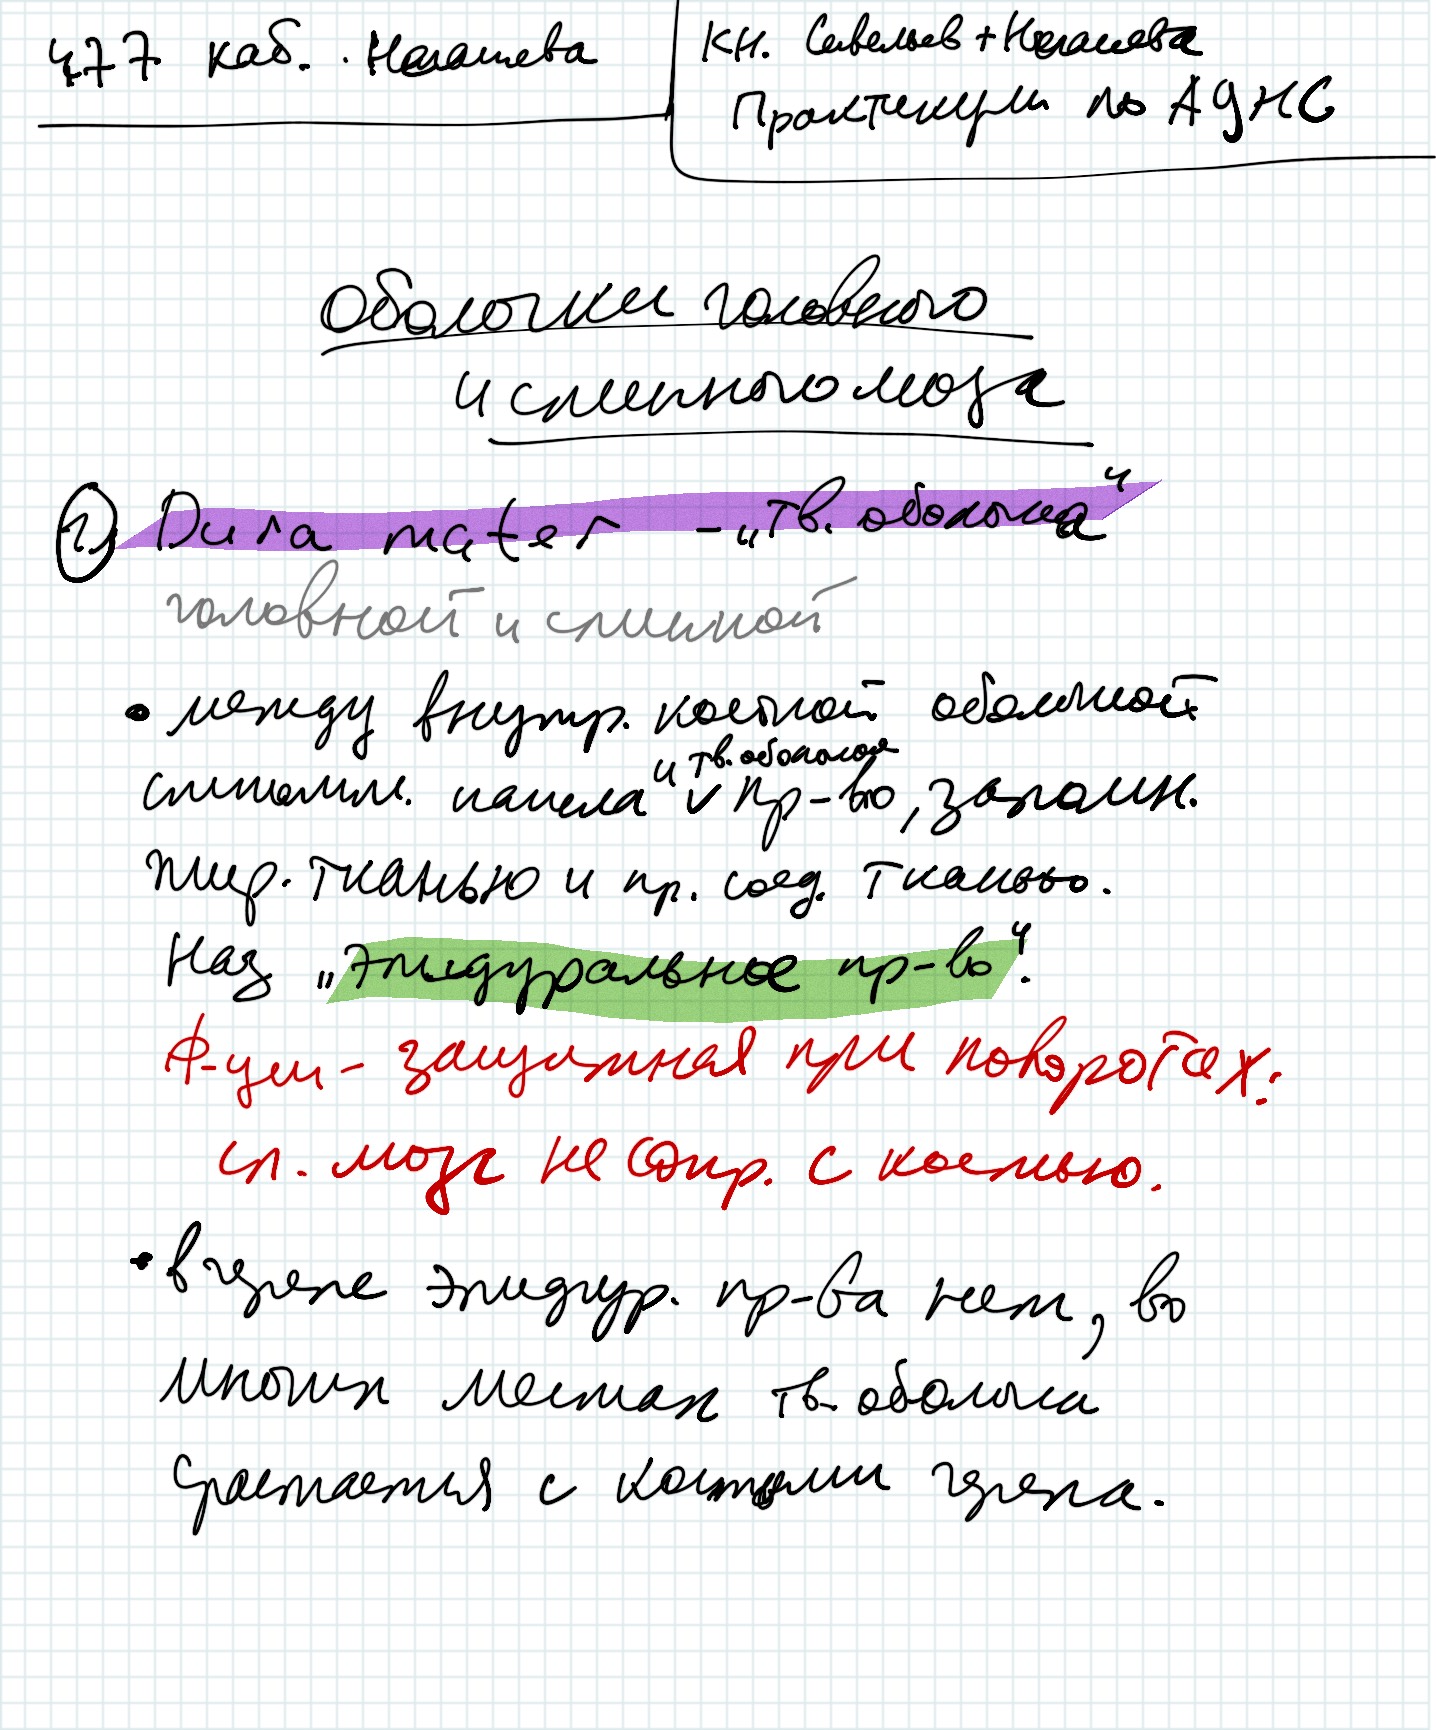 477 каб. Негашева
КН. Савельев + Негашева
Практикум по АДНС
Оболочки головного
и спинного мозга
1. Dura mater - „тв. оболочка“
головной и спинной
• между внутр. костной оболочкой
спинномм. канала и тв. оболочкой пр-во, заполн.
жир. тканью и пр. соед. тканью.
Наз „эпидуральное пр-во“.
Ф-ции - защитная при поворотах:
сп. мозг не сопр. с костью.
• в черепе эпидур. пр-ва нет, во
многих местах тв. оболочка
срастается с костями черепа.